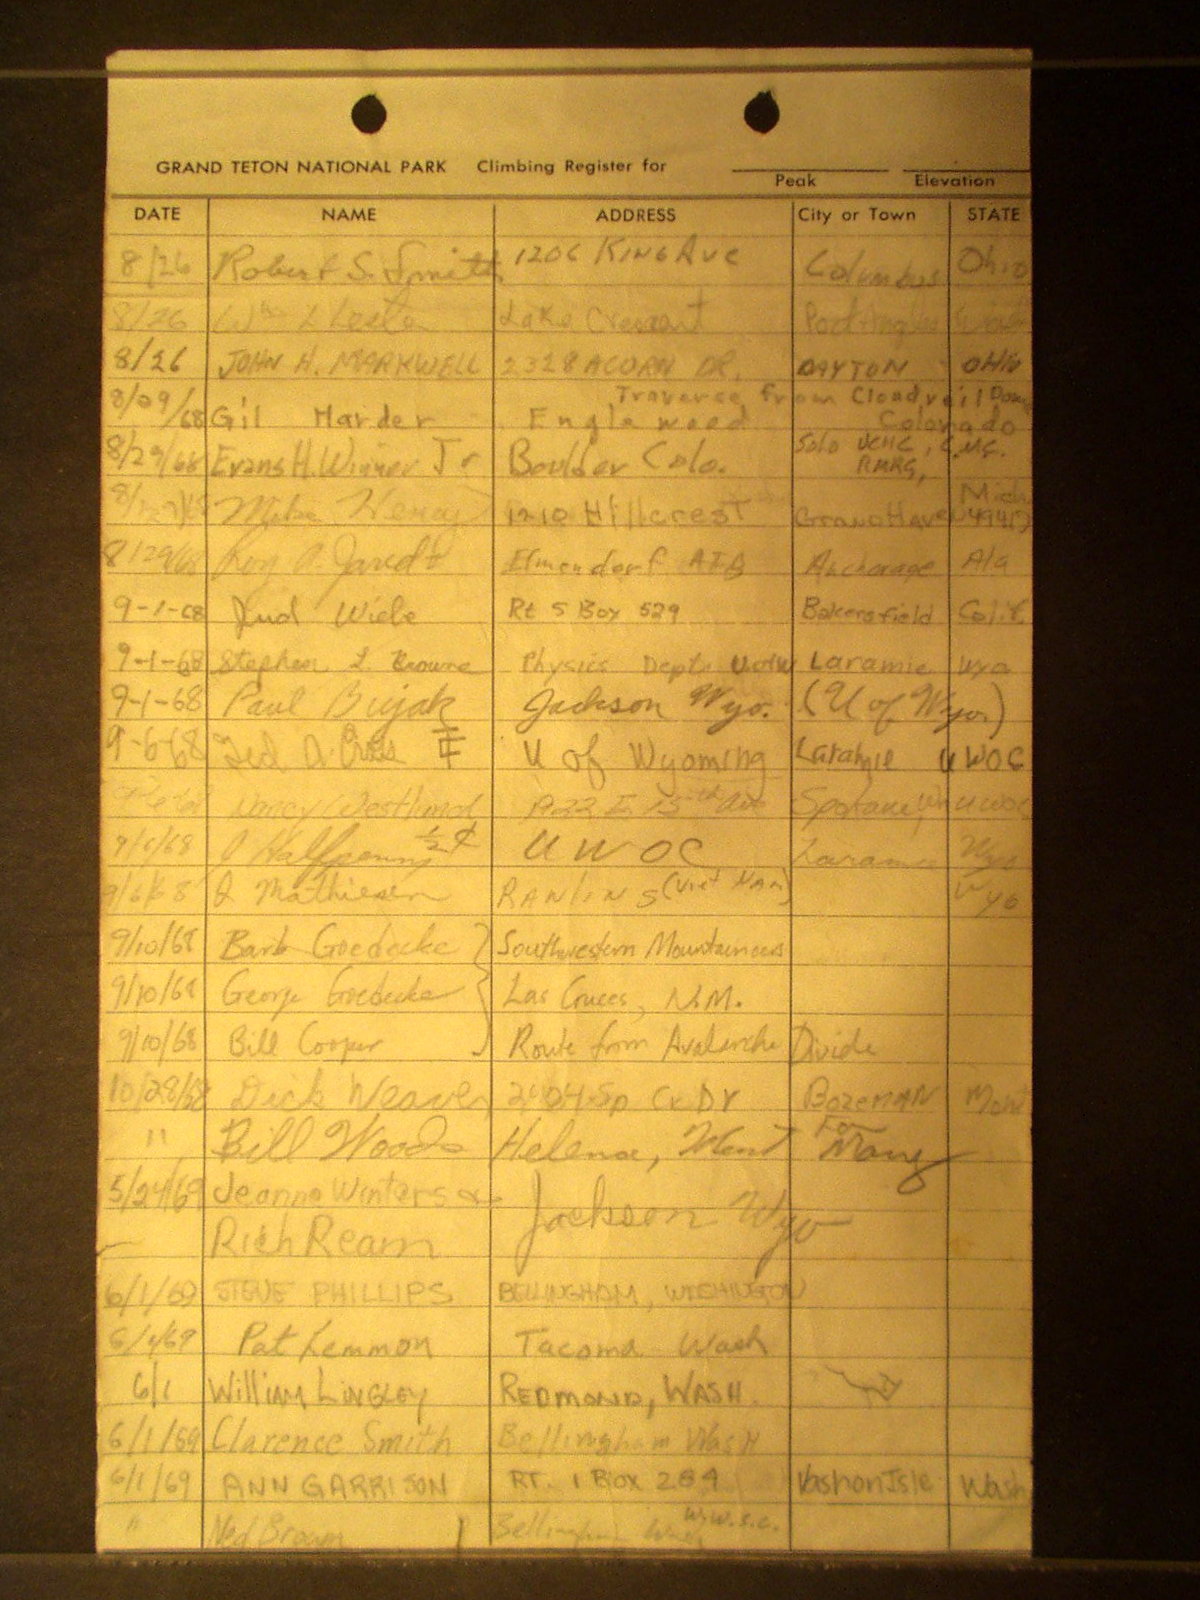 GRAND TETON NATIONAL PARK Climbing Register for
Peak Elevation
DATE NAME ADDRESS City or Town STATE
8/26 Robert S. Smith 1206 KING AVE Columbus Ohio
8/26 Lake Crescent Port Angeles Wash
8/26 JOHN H. MARKWELL 2328 ACORN DR. DAYTON OHIO
Traverse from Cloudveil Dome
8/29/68 Gil Harder Englewood Colorado
8/29/68 Evans H. Winner Jr Boulder Colo. Solo UCHC, C.M.C.
RMRG,
8/29/68 Mike Henry 1210 Hillcrest Grand Haven Mich 49417
8/29/68 Ron Elmendorf AFB Anchorage Ala
9-1-68 Jud Wiebe Rt 5 Box 529 Bakersfield Calif.
9-1-68 Stephen L. Browne Physics Dept. U.of W Laramie Wyo
9-1-68 Paul Bujak Jackson Wyo. (U of Wyo.)
9-6-68 Ted A. U of Wyoming Laramie UWOC
Nancy Westlund E 15th Ave Spokane, Wn UWOC
9/6/68 J Halfpenny ½ ¢ UWOC Laramie Wyo
9/6/68 J Mathiesen RAWLINS (Viet Nam) Wyo
9/10/68 Barb Goedecke Southwestern Mountaineers
9/10/68 George Goedecke Las Cruces, N.M.
9/10/68 Bill Cooper Route from Avalanche Divide
10/28/68 Dick Weaver 2404 Sp Cr Dr BOZEMAN Mont
" Bill Woods Helena, Mont For Many
5/24/69 Jeanne Winters &
Rich Ream Jackson Wyo
6/1/69 STEVE PHILLIPS BELLINGHAM, WASHINGTON
6/1/69 Pat Lemmon Tacoma Wash
6/1 William Lingley REDMOND, WASH.
6/1/69 Clarence Smith Bellingham Wash
6/1/69 ANN GARRISON RT. 1 Box 284 Vashon Isle Wash
" Ned Brown Bellingham Wash W.W.S.C.